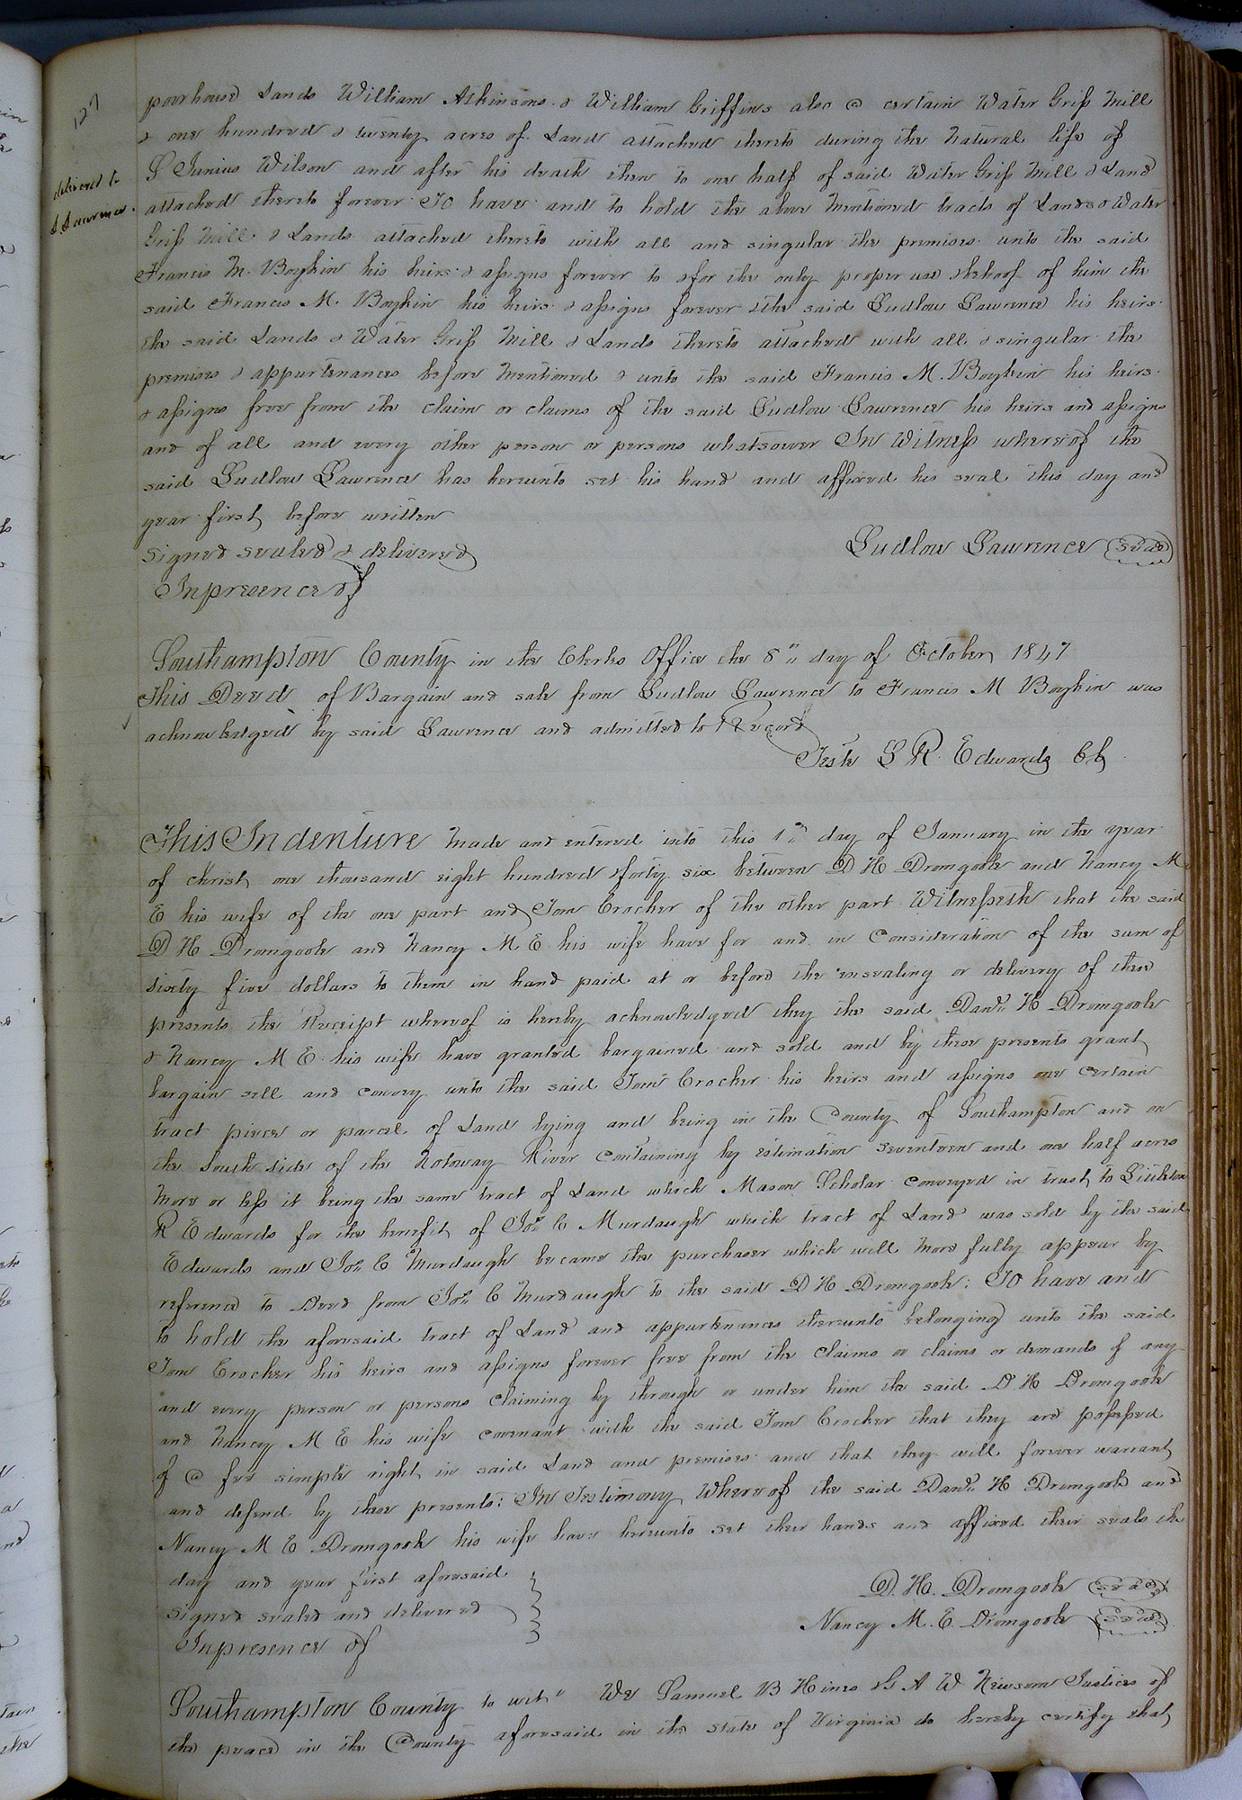 127
delivered to
L Lawrence
poorhouse Lands William Atkinsons & William Griffins also a certain Water Grist Mill
& one hundred & twenty acres of Land attached thereto during the Natural life of
S Junius Wilson and after his death then to one half of said Water Grist Mill & Land
attached thereto forever To have and to hold the above mentioned tracts of Lands & Water
Grist Mill & Lands attached thereto with all and singular the premises unto the said
Francis M. Boykin his heirs & assigns forever to & for the only proper use & behoof of him the
said Francis M. Boykin his heirs & assigns forever & the said Ludlow Lawrence his heirs
the said Lands & Water Grist Mill & Lands thereto attached with all & singular the
premises & appurtenances before mentioned & unto the said Francis M. Boykin his heirs
& assigns free from the claim or claims of the said Ludlow Lawrence his heirs and assigns
and of all and every other person or persons whatsoever In Witness whereof the
said Ludlow Lawrence has hereunto set his hand and affixed his seal this day and
year first before written
Signed sealed & delivered Ludlow Lawrence (seal)
In presence of
Southampton County in the Clerks Office the 8" day of October 1847
This Deed of Bargain and sale from Ludlow Lawrence to Francis M Boykin was
acknowledged by said Lawrence and admitted to Record
Teste L R Edwards Cl
This Indenture made and entered into this 1st day of January in the year
of christ one thousand eight hundred & forty six between D H Dromgoole and Nancy M
E his wife of the one part and Tom Crocker of the other part Witnesseth that the said
D H Dromgoole and Nancy M E his wife have for and in Consideration of the sum of
sixty five dollars to them in hand paid at or before the ensealing or delivery of these
presents the Receipt whereof is hereby acknowledged they the said Danl. H Dromgoole
& Nancy M E his wife have granted bargained and sold and by these presents grant
bargain sell and convey unto the said Tom Crocker his heirs and assigns one certain
tract piece or parcel of Land lying and being in the County of Southampton and on
the South side of the Notoway River Containing by estimation Seventeen and one half acres
more or less it being the same tract of Land which Mason Scholar conveyed in trust to Littleton
R Edwards for the benefit of Jos. C Murdaugh which tract of Land was sold by the said
Edwards and Jos. C Murdaugh became the purchaser which will more fully appear by
reference to Deed from Jos. C Murdaugh to the said D H Dromgoole: To have and
to hold the aforesaid tract of Land and appurtenances thereunto belonging unto the said
Tom Crocker his heirs and assigns forever free from the claims or claims or demands of any
and every person or persons claiming by through or under him the said D H Dromgoole
and Nancy M E his wife covenant with the said Tom Crocker that they are possessed
of a fee simple right in said Land and premises and that they will forever warrant
and defend by these presents: In Testimony Whereof the said Danl. H Dromgoole and
Nancy M E Dromgoole his wife have hereunto set their hands and affixed their seals the
day and year first aforesaid
Signed sealed and delivered D. H. Dromgoole (seal)
In presence of Nancy M. E. Dromgoole (seal)
Southampton County to wit" We Samuel B Hines & A W Newsom Justices of
the peace in the County aforesaid in the State of Virginia do hereby certify that